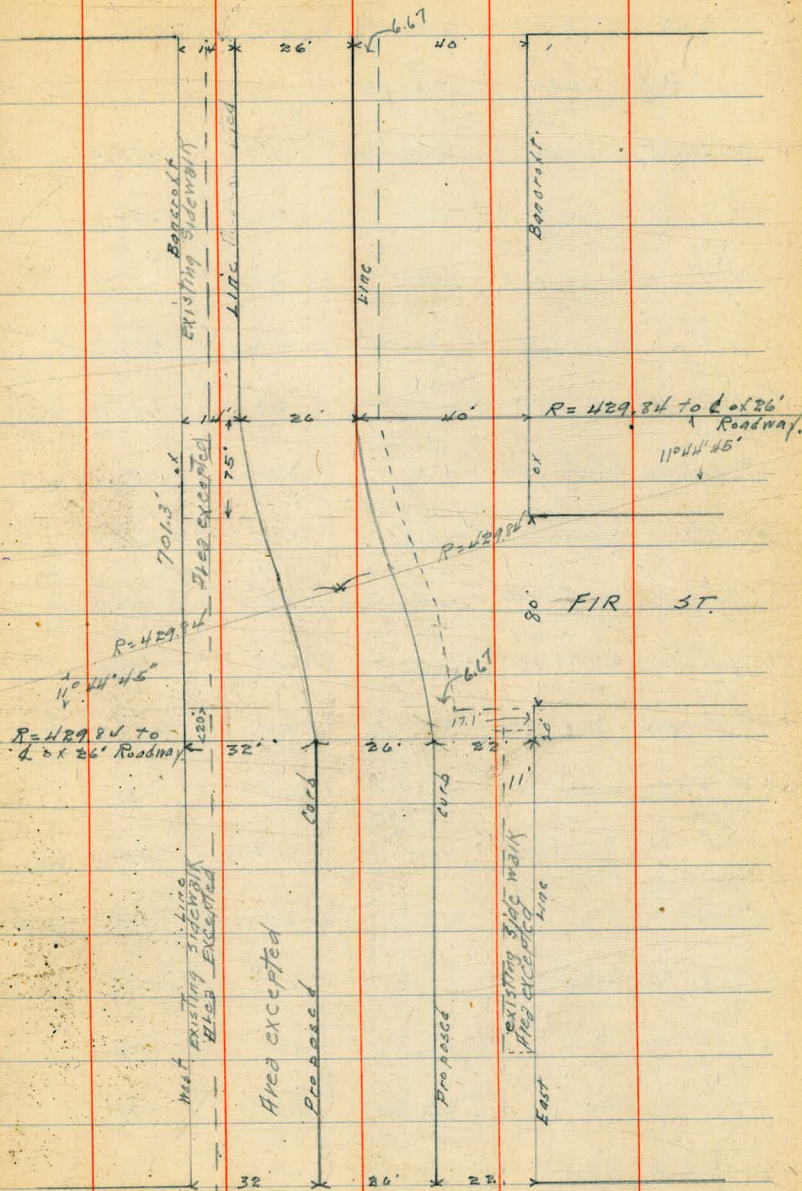 6.67
14' 26' 40'
Bancroft
Existing Sidewalk
Line
Line
Bancroft.
14' 26' 40'
R = 429.84 to ℄ of 26'
Roadway.
11°44'45"
75'
of
of
701.3'
Area excepted
R=429.84
R=429.84
80' FIR ST.
11°44'45"
6.67
17.1'
20'
20'
R=429.84 to
℄ of 26' Roadway
32' 26' 22'
11'
Curb
Curb
West Line
Existing Sidewalk
Area Excepted
Area excepted
Proposed
Proposed
existing side walk
Area excepted
East Line
32 26' 22.